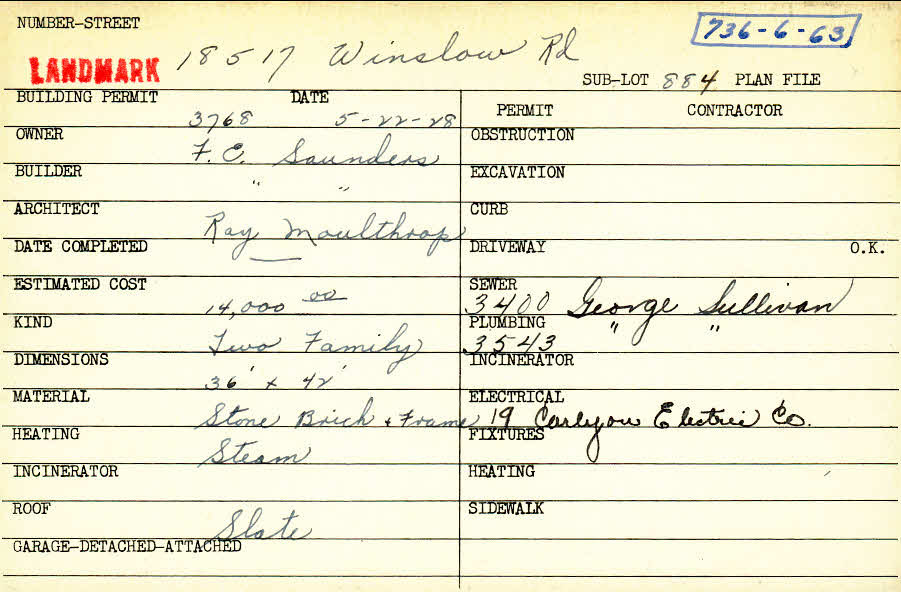 NUMBER-STREET
736-6-63
18517 Winslow Rd
LANDMARK
SUB-LOT 884 PLAN FILE
BUILDING PERMIT DATE
3768 5-22-28
OWNER
F. E. Saunders
BUILDER
" "
ARCHITECT
Ray Moulthrop
DATE COMPLETED
ESTIMATED COST
14,000 00
KIND
Two Family
DIMENSIONS
36' x 42'
MATERIAL
Stone Brick & Frame
HEATING
Steam
INCINERATOR
ROOF
Slate
GARAGE-DETACHED-ATTACHED
PERMIT CONTRACTOR
OBSTRUCTION
EXCAVATION
CURB
DRIVEWAY O.K.
SEWER
3400 George Sullivan
PLUMBING
3543 " "
INCINERATOR
ELECTRICAL
19 Carlyou Electric Co.
FIXTURES
HEATING
SIDEWALK